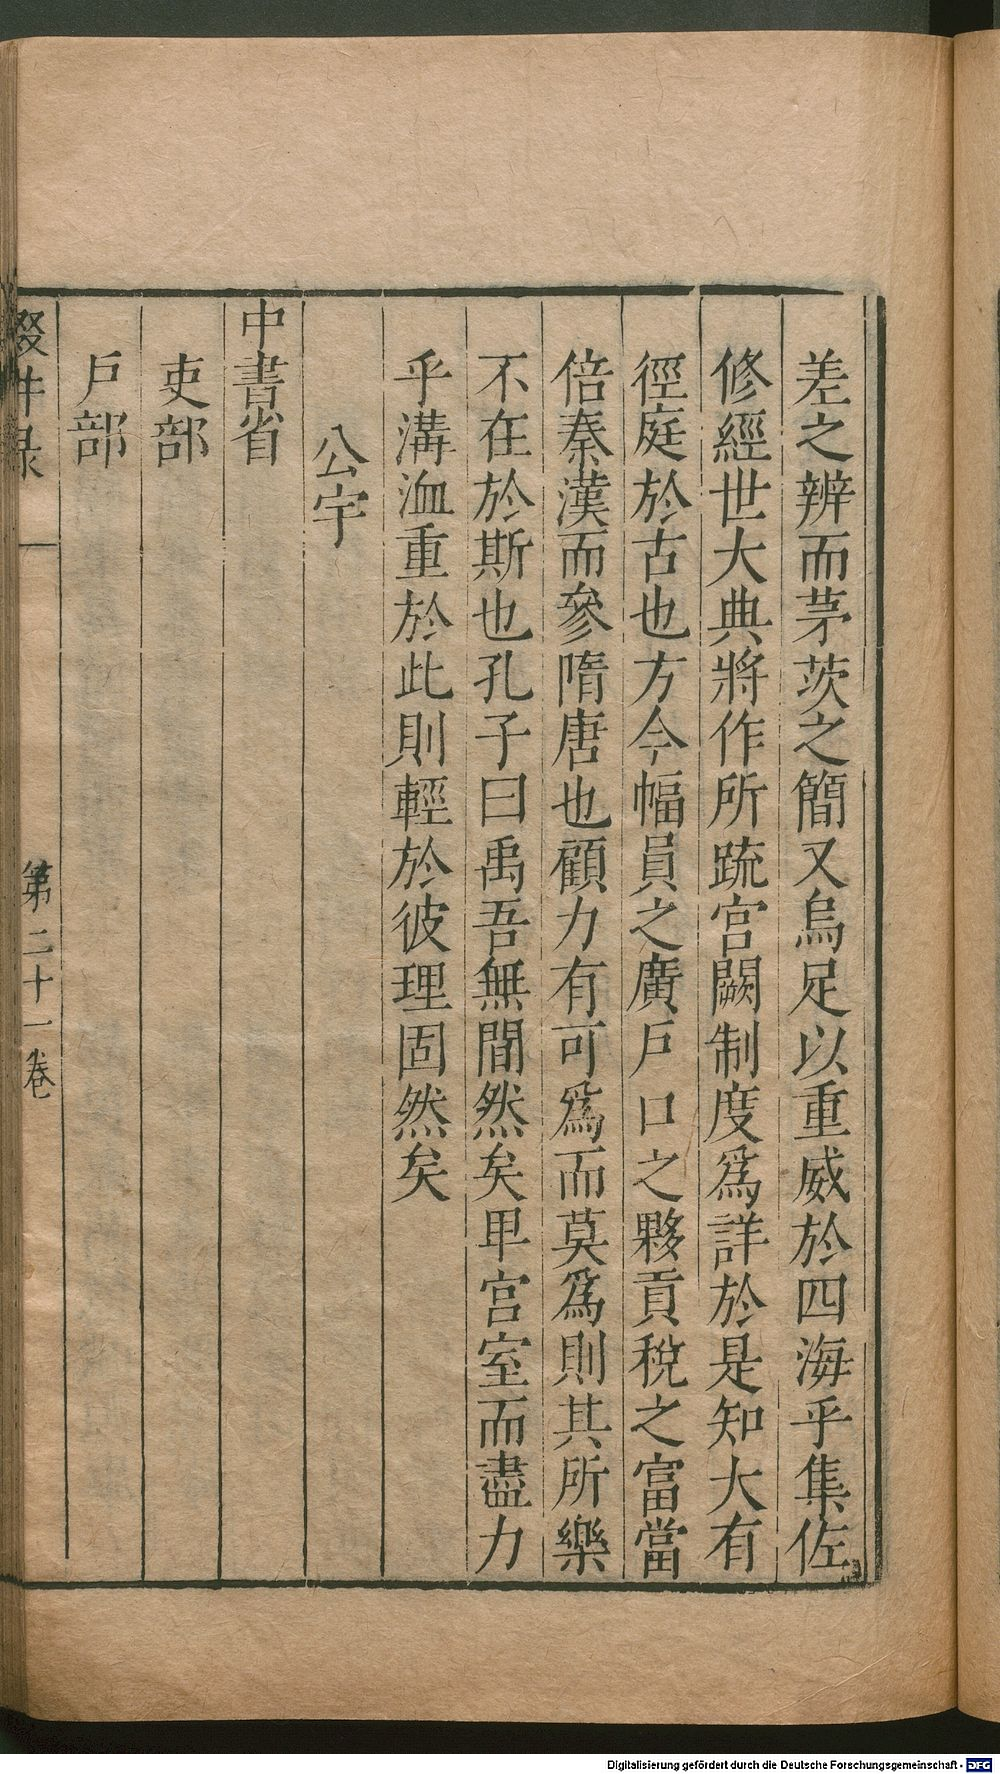 差之辨而茅茨之簡又烏足以重威於四海乎集佐
修經世大典將作所䟽宫闕制度爲詳於是知大有
徑庭於古也方今幅員之廣戸口之夥貢稅之富當
倍秦漢而參隋唐也顧力有可爲而莫爲則其所樂
不在於斯也孔子曰禹吾無間然矣甲宫室而盡力
乎溝洫重於此則輕於彼理固然矣
公宇
中書省
吏部
戸部
輟畊录 第二十一卷
Digitalisierung gefördert durch die Deutsche Forschungsgemeinschaft - DFG